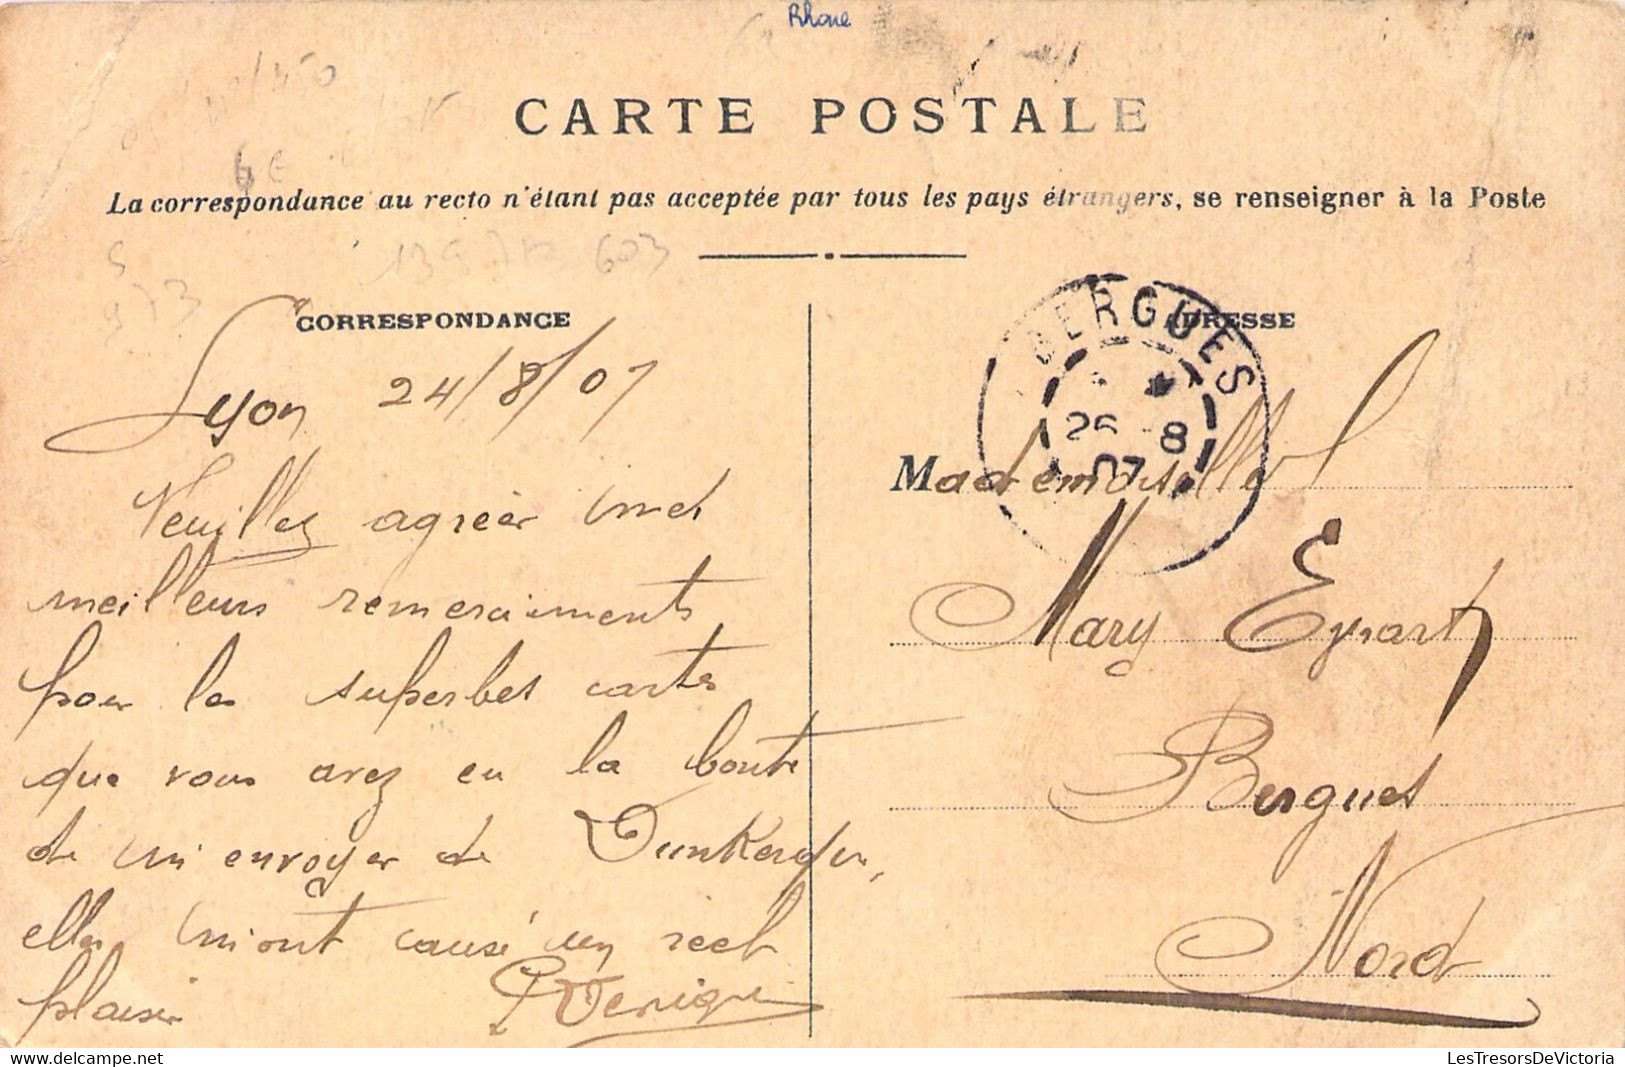 Rhone
CARTE POSTALE
La correspondance au recto n'étant pas acceptée par tous les pays étrangers, se renseigner à la Poste
139713 603
973
CORRESPONDANCE
Lyon 24/8/07
Veuillez agréer mes
meilleurs remerciements
pour les superbes cartes
que vous avez eu la bonté
de m'envoyer de Dunkerque,
elles m'ont causé un réel
plaisir
ADRESSE
BERGUES
26 -8
07
Mademoiselle
Mary Eynart
Bergues
Nord
LesTresorsDeVictoria